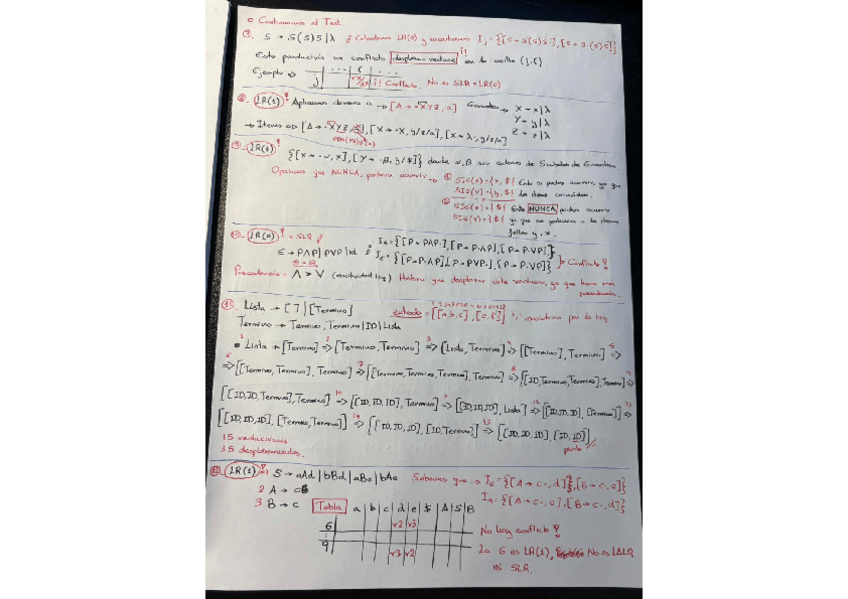 o Continuamos al Test
7. S → S(S)S | λ ¿ Calculamos LR(0) y encontramos I_j = {[S → S(S)S·],[S → S·(S)S]}
Esto produciría un conflicto desplazar-reducir !! en la casilla (j,()
Ejemplo ⇒ j ... ( ... ¡! Conflicto. No es SLR ni LR(0)
8. LR(1)! Aplicamos clausura a → [A → ·XYZ, a] Gramática → X → x|λ
Y → y|λ
Z → z|λ
→ Items ⇒ [A → ·XYZ, a],[X → ·x, y/z/a],[X → λ·, y/z/a]
9. LR(1)! {[X → ·α, x],[Y → ·β, y/$]} donde α,β son cadenas de Símbolos de Gramática.
Opciones que NUNCA podría ocurrir → ① SIG(X)={x,$} Esto si podría ocurrir, ya que
SIG(Y)={y,$} los items coinciden.
② SIG(X)={$} Esto NUNCA podría ocurrir
SIG(Y)={$} ya que no pertenece a los items
follow y, x.
10. LR(0)! = SLR
E → PΛP | PVP | id I_6 = {[P → PΛP·],[P → P·ΛP],[P → P·VP]}
I_7 = {[P → P·ΛP],[P → PVP·],[P → P·VP]} Conflicto!
Precedencia - Λ > V (asociatividad izq) Habría que desplazar ante reducir, ya que tiene más
precedencia.
11. Lista → [ ] | [Termino] entrada = [[a,b,c],[d,e]] asociativa por la izq
Termino → Termino, Termino | ID | Lista
• Lista → [Termino] ⇒ [Termino, Termino] ⇒ [Lista, Termino] ⇒ [[Termino], Termino] ⇒
⇒ [[Termino, Termino], Termino] ⇒ [[Termino, Termino, Termino], Termino] ⇒ [[ID, Termino, Termino], Termino] ⇒
[[ID, ID, Termino], Termino] ⇒ [[ID, ID, ID], Termino] ⇒ [[ID, ID, ID], Lista] ⇒ [[ID, ID, ID], [Termino]] ⇒
[[ID, ID, ID], [Termino, Termino]] ⇒ [[ID, ID, ID], [ID, Termino]] ⇒ [[ID, ID, ID], [ID, ID]]
15 reducciones
15 desplazamientos.
12. LR(1)! 1 S → aAd | bBd | aBe | bAe Sabemos que → I_6 = {[A → c·, d],[B → c·, e]}
2 A → c
3 B → c I_9 = {[A → c·, e],[B → c·, d]}
Tabla a | b | c | d | e | $ | A | S | B
6 r2 r3 No hay conflicto!
9 r3 r2 La G es LR(1), No es LALR
ni SLR.